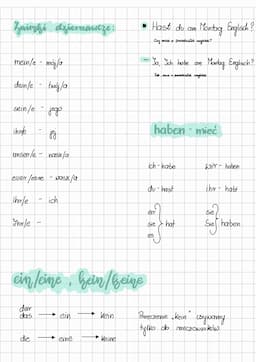 Zaimki dzierżawcze:
mein/e - mój/a
dein/e - twój/a
sein/e - jego
ihr/e - jej
unser/e - nasz/a
euer/eure - wasz/a
ihr/e - ich
Ihr/e -
Hast du am Montag Englisch?
Czy masz w poniedziałek angielski?
- Ja, Ich habe am Montag Englisch?
Tak, mam w poniedziałek angielski
haben - mieć
ich - habe
wir - haben
du - hast
ihr - habt
er
sie
es
hat
sie
Sie
haben
ein/eine, kein/keine
der
das → ein → kein
die → eine → keine
Przeczenie "kein" używamy
tylko do rzeczowników